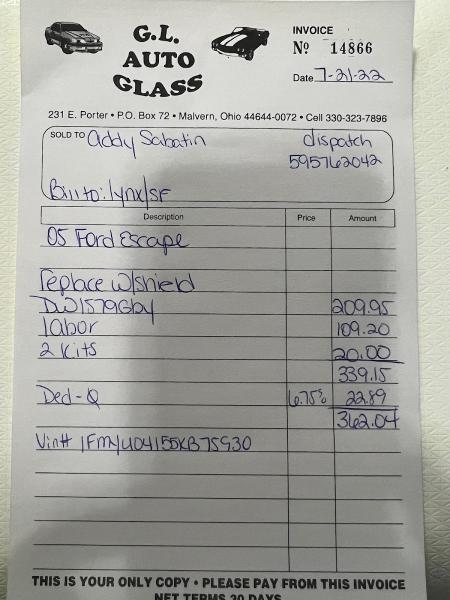 G.L.
AUTO
GLASS
INVOICE
Nº 14866
Date 7-21-22
231 E. Porter • P.O. Box 72 • Malvern, Ohio 44644-0072 • Cell 330-323-7896
SOLD TO Addy Sabatin dispatch
595762042
Bill to: lynx/SF
Description Price Amount
05 Ford Escape
replace w/shield
DW1579Gby 209.95
labor 109.20
2 Kits 20.00
339.15
Ded-0 6.75% 22.89
362.04
Vin# 1FMYU04155KB75930
THIS IS YOUR ONLY COPY • PLEASE PAY FROM THIS INVOICE
NET TERMS 30 DAYS